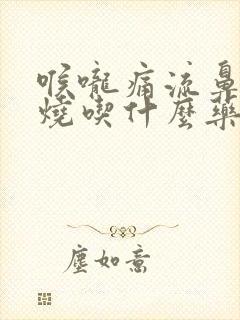 喉嚨痛流鼻
燒喫什麼藥
塵如意